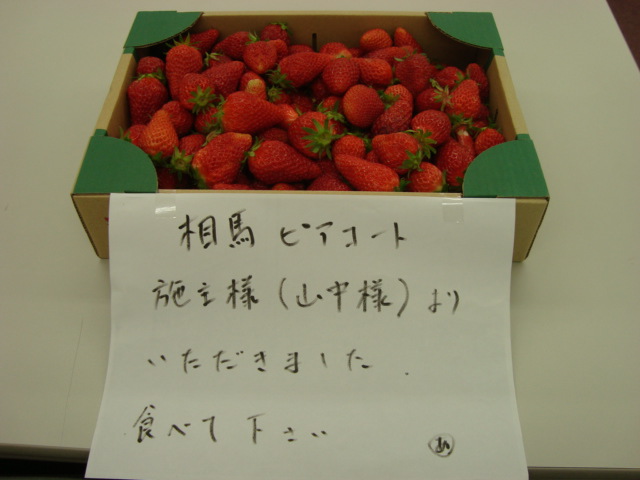 相馬 ピアコート
施主様(山中様)より
いただきました.
食べて下さい